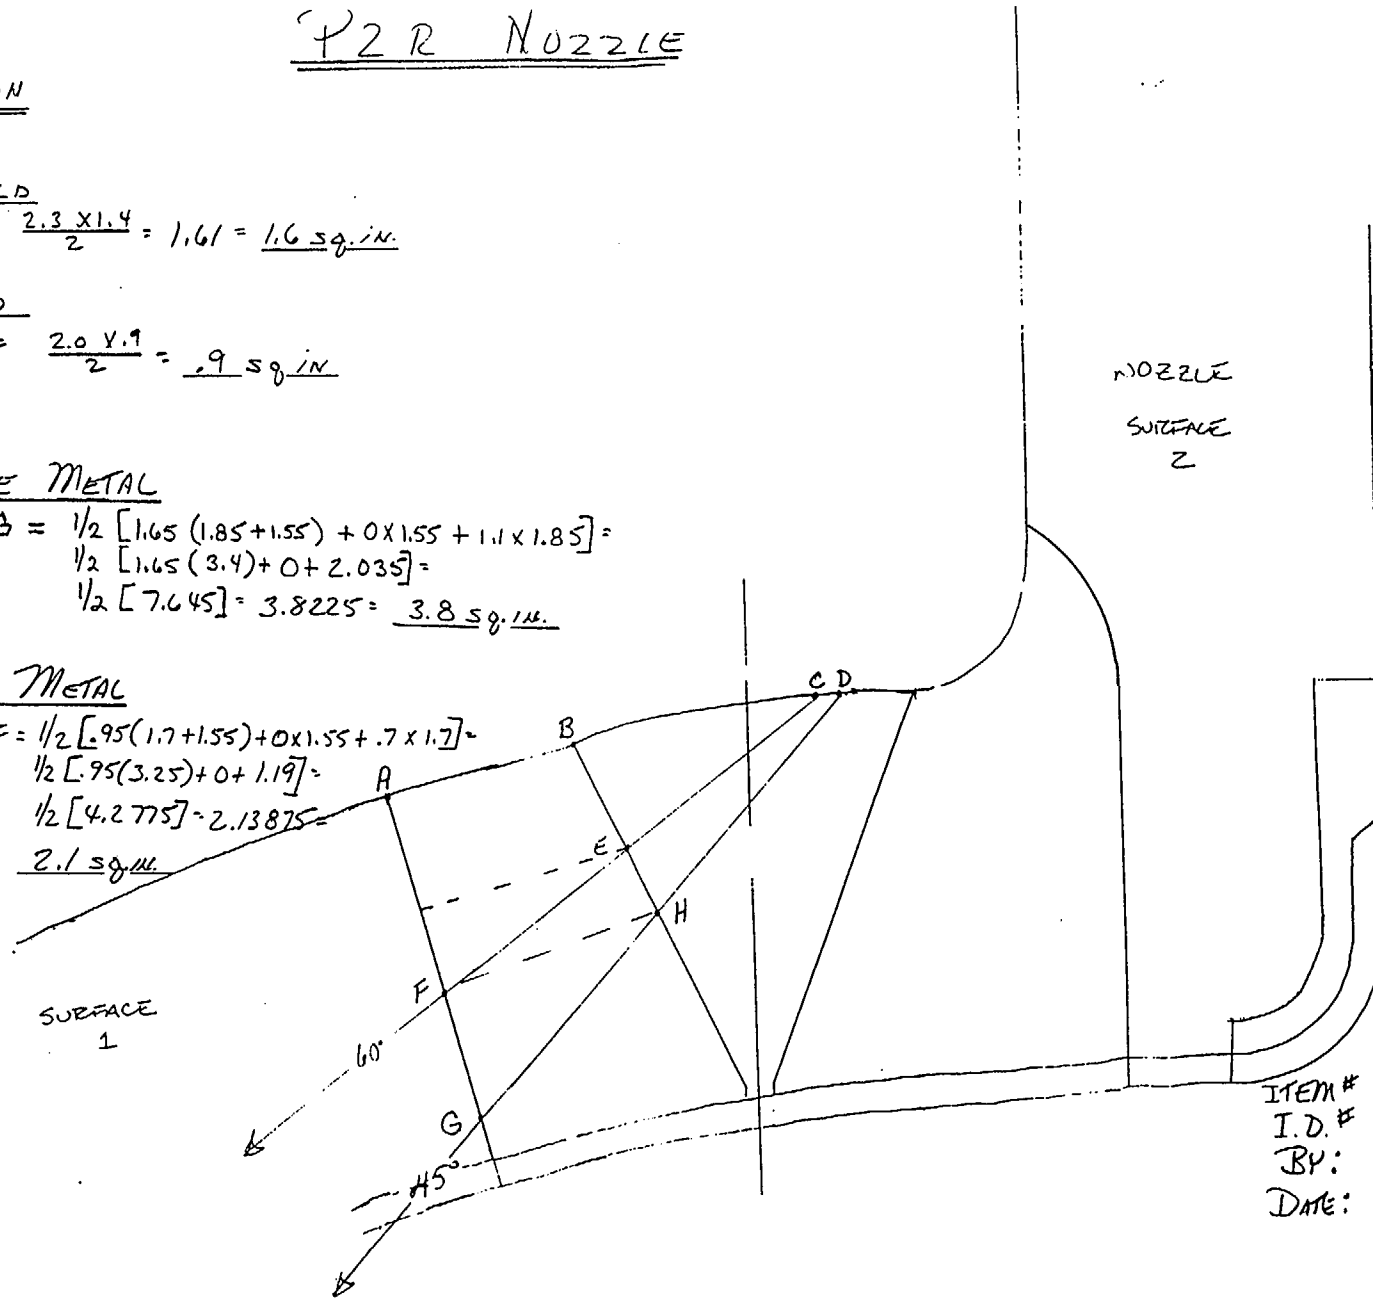 P2R NOZZLE
ON
LD
2.3 X1.4 / 2 = 1.61 = 1.6 sq. in.
D
= 2.0 X.9 / 2 = .9 sq in
E METAL
B = 1/2 [1.65 (1.85+1.55) + 0X1.55 + 1.1 x 1.85] =
1/2 [1.65 (3.4) + 0 + 2.035] =
1/2 [7.645] = 3.8225 = 3.8 sq. in.
METAL
= 1/2 [.95(1.7+1.55)+0x1.55 + .7 x 1.7] =
1/2 [.95(3.25)+0+1.19] =
1/2 [4.2775] = 2.13875 =
2.1 sq.in.
NOZZLE
SURFACE
2
C D
B
A
E
H
F
SURFACE
1
60°
G
45°
ITEM #
I.D. #
BY:
DATE: